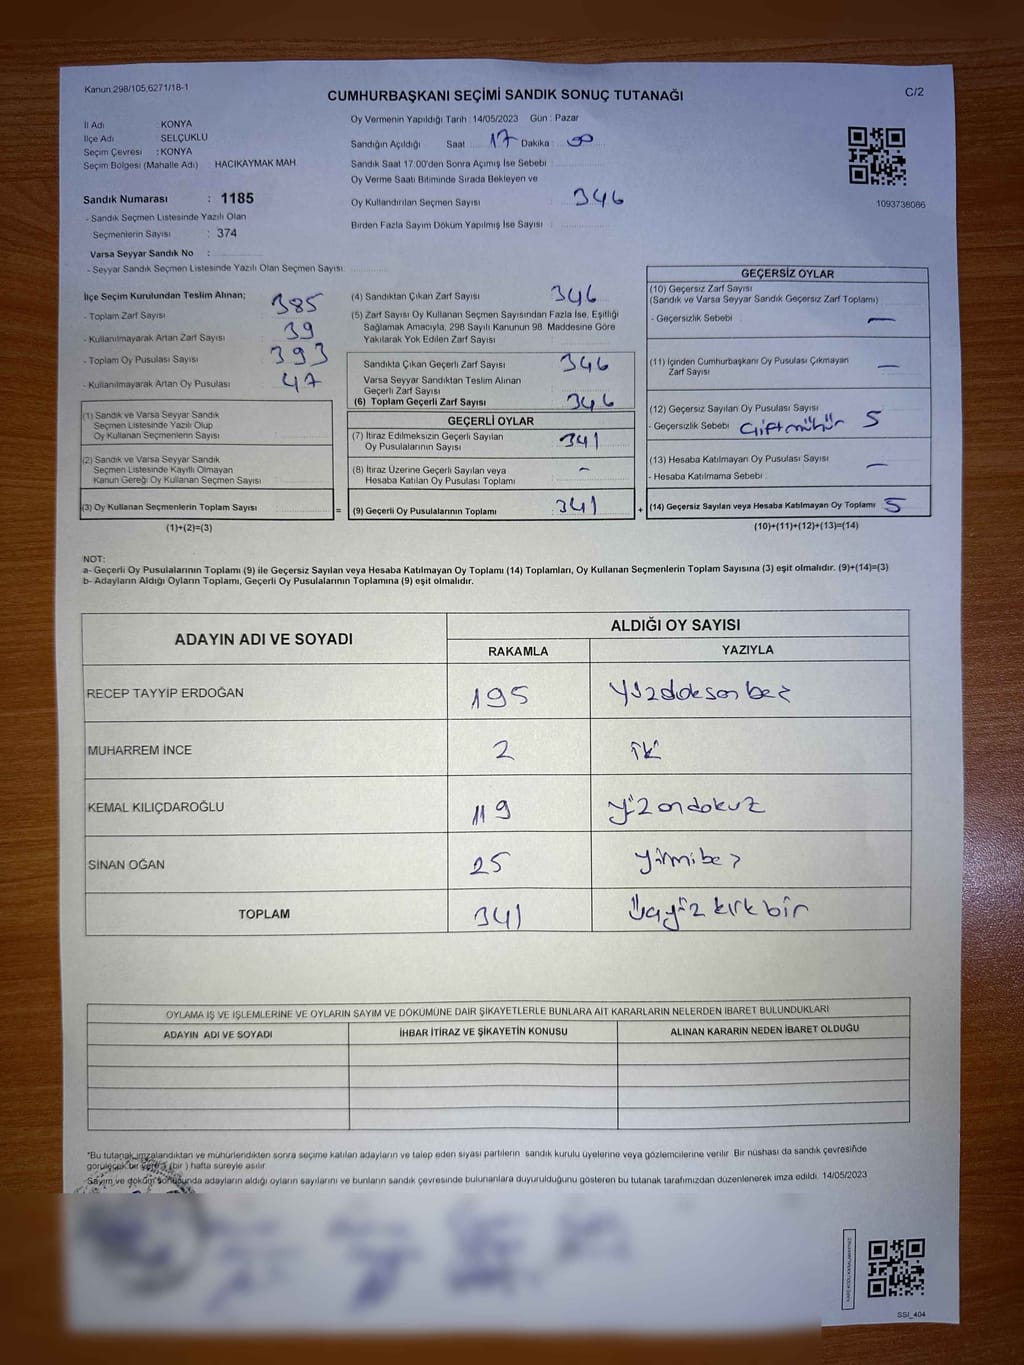 Kanun:298/105,6271/18-1
CUMHURBAŞKANI SEÇİMİ SANDIK SONUÇ TUTANAĞI
C/2
İl Adı : KONYA
İlçe Adı : SELÇUKLU
Seçim Çevresi : KONYA
Seçim Bölgesi (Mahalle Adı) HACIKAYMAK MAH
Sandık Numarası : 1185
- Sandık Seçmen Listesinde Yazılı Olan
Seçmenlerin Sayısı : 374
Varsa Seyyar Sandık No :
- Seyyar Sandık Seçmen Listesinde Yazılı Olan Seçmen Sayısı:
Oy Vermenin Yapıldığı Tarih : 14/05/2023 Gün : Pazar
Sandığın Açıldığı Saat 17 Dakika : 00
Sandık Saat 17:00'den Sonra Açılmış İse Sebebi :
Oy Verme Saati Bitiminde Sırada Bekleyen ve
Oy Kullandırılan Seçmen Sayısı : 346
Birden Fazla Sayım Döküm Yapılmış İse Sayısı :
1093736086
İlçe Seçim Kurulundan Teslim Alınan;
- Toplam Zarf Sayısı : 385
- Kullanılmayarak Artan Zarf Sayısı : 39
- Toplam Oy Pusulası Sayısı : 393
- Kullanılmayarak Artan Oy Pusulası : 47
(1) Sandık ve Varsa Seyyar Sandık
Seçmen Listesinde Yazılı Olup
Oy Kullanan Seçmenlerin Sayısı :
(2) Sandık ve Varsa Seyyar Sandık
Seçmen Listesinde Kayıtlı Olmayan
Kanun Gereği Oy Kullanan Seçmen Sayısı :
(3) Oy Kullanan Seçmenlerin Toplam Sayısı :
(1)+(2)=(3)
(4) Sandıktan Çıkan Zarf Sayısı : 346
(5) Zarf Sayısı Oy Kullanan Seçmen Sayısından Fazla İse, Eşitliği
Sağlamak Amacıyla, 298 Sayılı Kanunun 98. Maddesine Göre
Yakılarak Yok Edilen Zarf Sayısı :
Sandıkta Çıkan Geçerli Zarf Sayısı : 346
Varsa Seyyar Sandıktan Teslim Alınan
Geçerli Zarf Sayısı
(6) Toplam Geçerli Zarf Sayısı : 346
GEÇERLİ OYLAR
(7) İtiraz Edilmeksizin Geçerli Sayılan
Oy Pusulalarının Sayısı : 341
(8) İtiraz Üzerine Geçerli Sayılan veya
Hesaba Katılan Oy Pusulası Toplamı : -
= (9) Geçerli Oy Pusulalarının Toplamı : 341 +
GEÇERSİZ OYLAR
(10) Geçersiz Zarf Sayısı
(Sandık ve Varsa Seyyar Sandık Geçersiz Zarf Toplamı)
- Geçersizlik Sebebi : —
(11) İçinden Cumhurbaşkanı Oy Pusulası Çıkmayan
Zarf Sayısı : —
(12) Geçersiz Sayılan Oy Pusulası Sayısı
- Geçersizlik Sebebi : Çift mühür 5
(13) Hesaba Katılmayan Oy Pusulası Sayısı : —
- Hesaba Katılmama Sebebi :
(14) Geçersiz Sayılan veya Hesaba Katılmayan Oy Toplamı : 5
(10)+(11)+(12)+(13)=(14)
NOT:
a- Geçerli Oy Pusulalarının Toplamı (9) ile Geçersiz Sayılan veya Hesaba Katılmayan Oy Toplamı (14) Toplamları, Oy Kullanan Seçmenlerin Toplam Sayısına (3) eşit olmalıdır. (9)+(14)=(3)
b- Adayların Aldığı Oyların Toplamı, Geçerli Oy Pusulalarının Toplamına (9) eşit olmalıdır.
ADAYIN ADI VE SOYADI
ALDIĞI OY SAYISI
RAKAMLA YAZIYLA
RECEP TAYYİP ERDOĞAN 195 yüzdoksan beş
MUHARREM İNCE 2 iki
KEMAL KILIÇDAROĞLU 119 yüz ondokuz
SİNAN OĞAN 25 yirmibeş
TOPLAM 341 üçyüz kırk bir
OYLAMA İŞ VE İŞLEMLERİNE VE OYLARIN SAYIM VE DÖKÜMÜNE DAİR ŞİKAYETLERLE BUNLARA AİT KARARLARIN NELERDEN İBARET BULUNDUKLARI
ADAYIN ADI VE SOYADI İHBAR İTİRAZ VE ŞİKAYETİN KONUSU ALINAN KARARIN NEDEN İBARET OLDUĞU
*Bu tutanak imzalandıktan ve mühürlendikten sonra seçime katılan adayların ve talep eden siyasi partilerin sandık kurulu üyelerine veya gözlemcilerine verilir. Bir nüshası da sandık çevresinde
görülecek bir yere 1 (bir) hafta süreyle asılır.
Sayım ve döküm sonucunda adayların aldığı oyların sayılarını ve bunların sandık çevresinde bulunanlara duyurulduğunu gösteren bu tutanak tarafımızdan düzenlenerek imza edildi. 14/05/2023
SSI_404